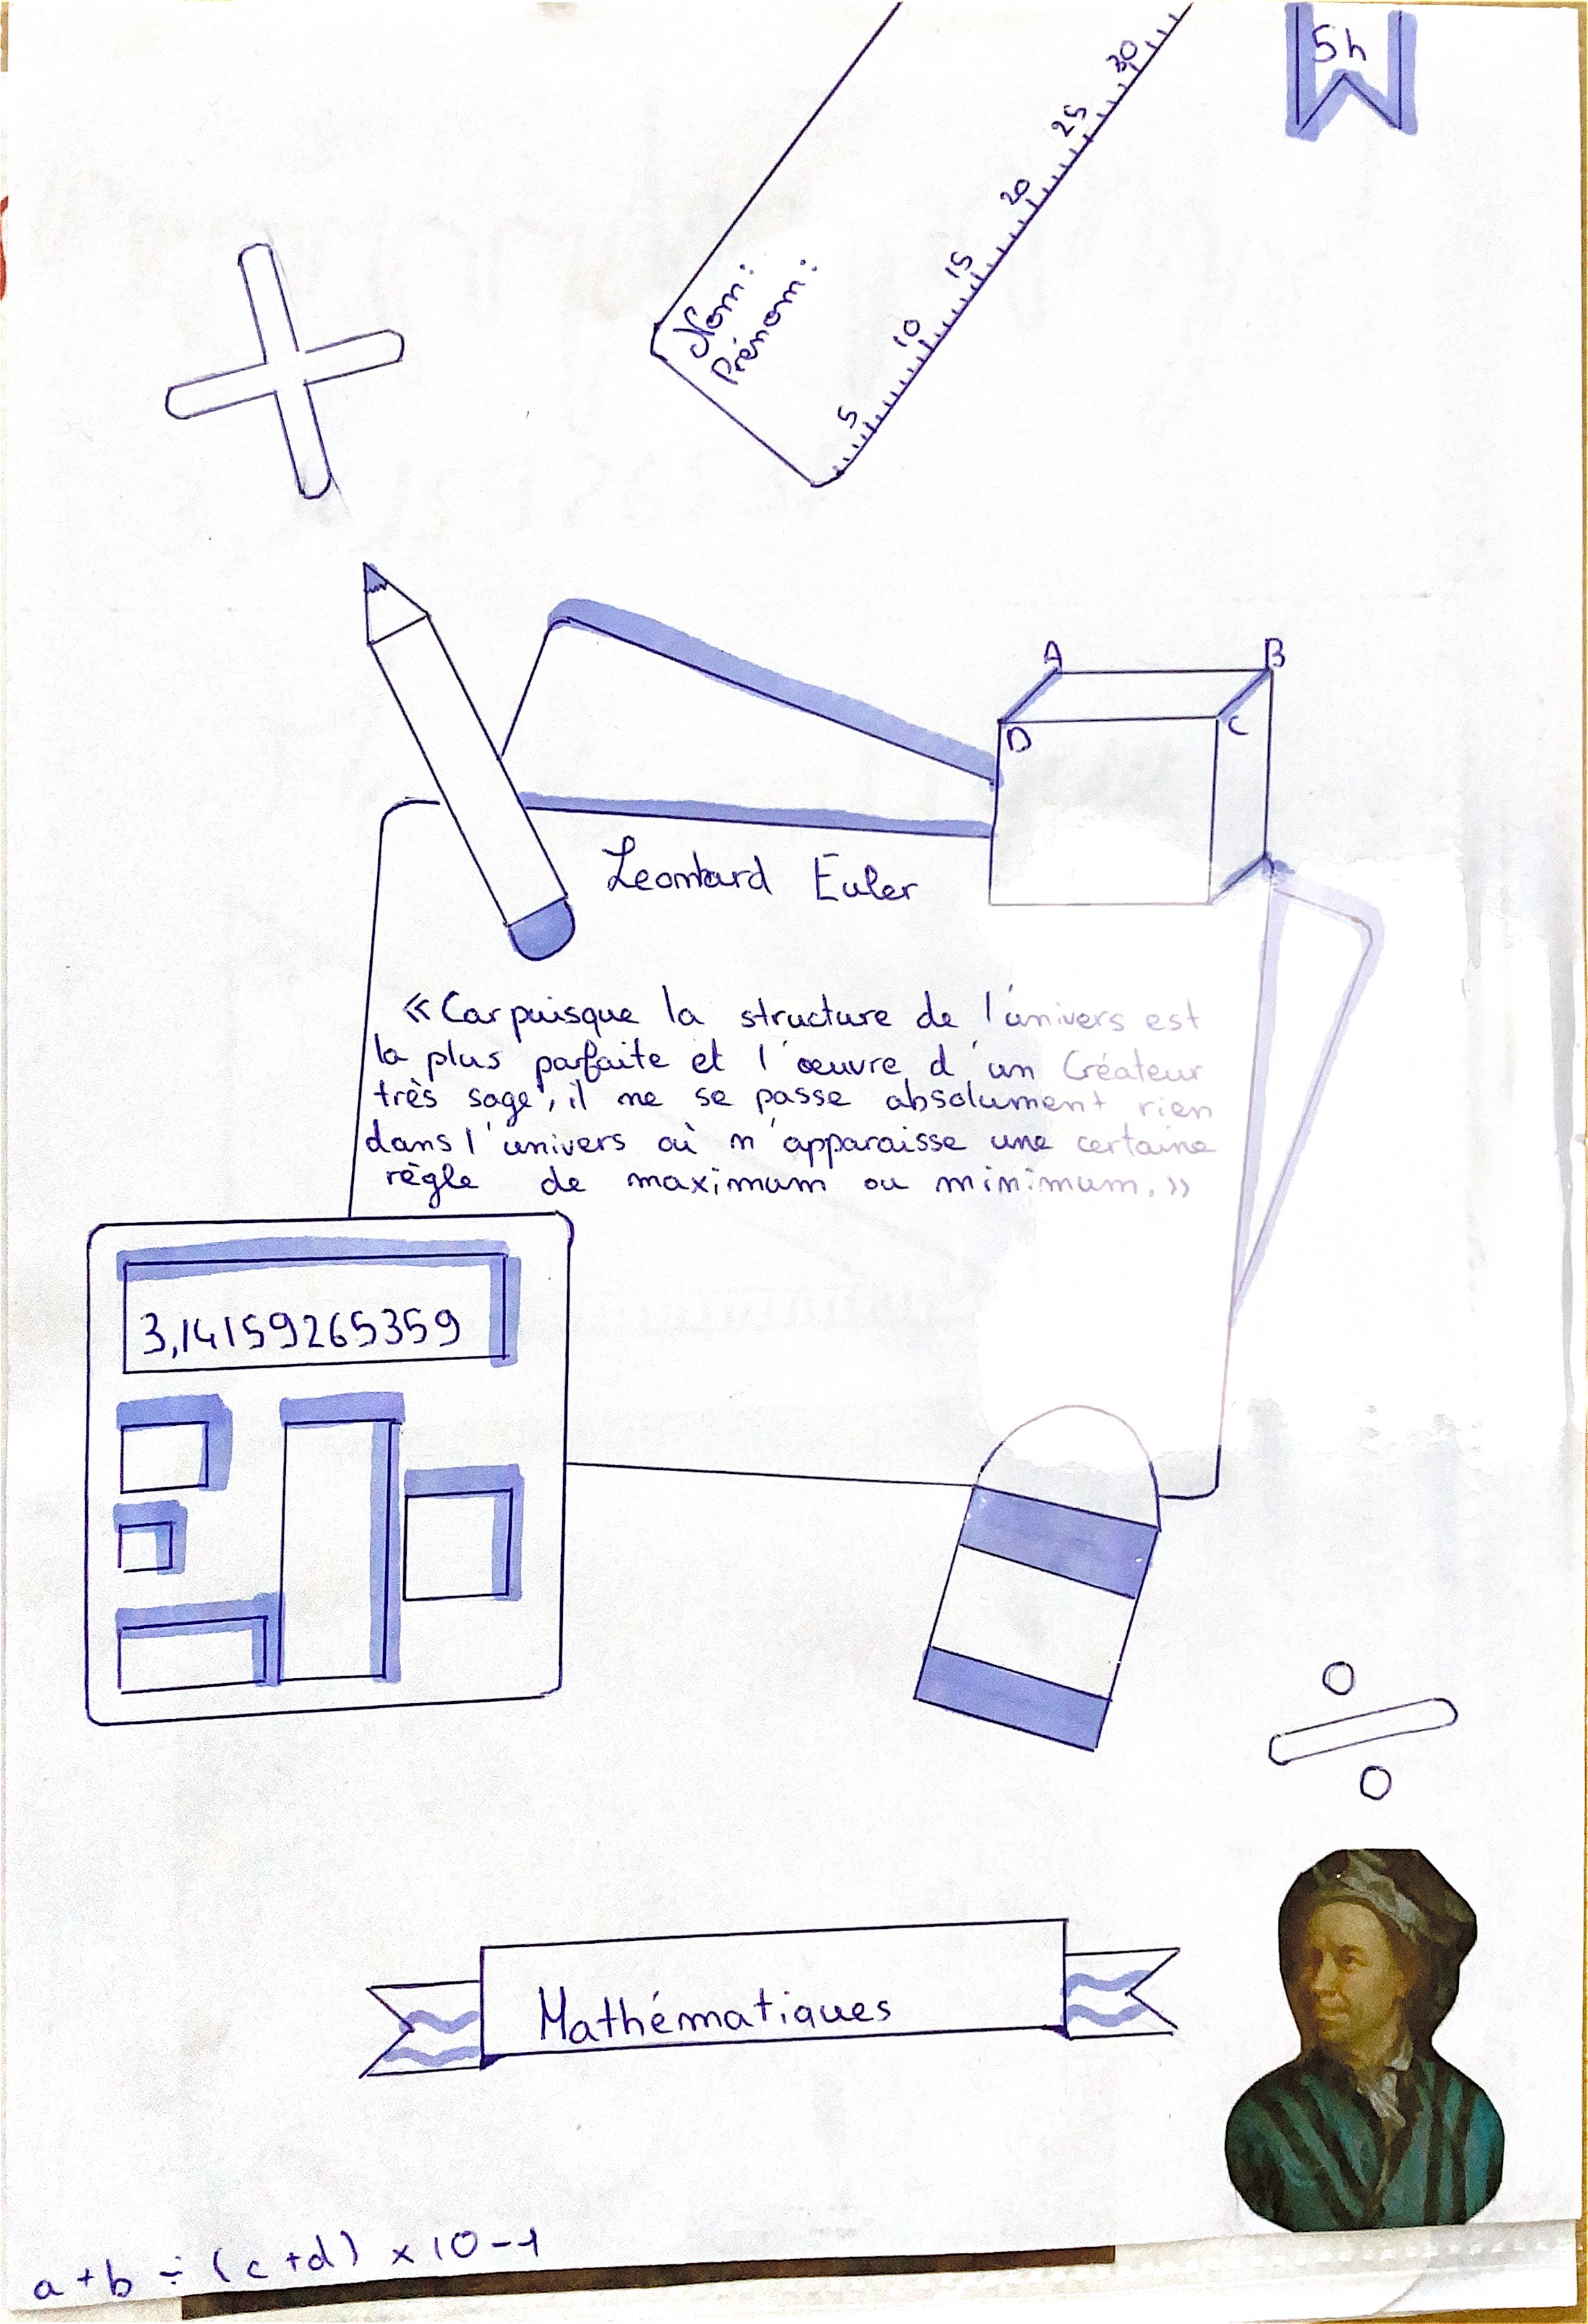 5h
30
25
20
15
10
5
Nom:
Prénom:
A
B
D
C
Leonhard Euler
«Car puisque la structure de l'univers est
la plus parfaite et l'œuvre d'un Créateur
très sage, il ne se passe absolument rien
dans l'univers où n'apparaisse une certaine
règle de maximum ou minimum.»
3,14159265359
Mathématiques
a+b÷(c+d)×10-1